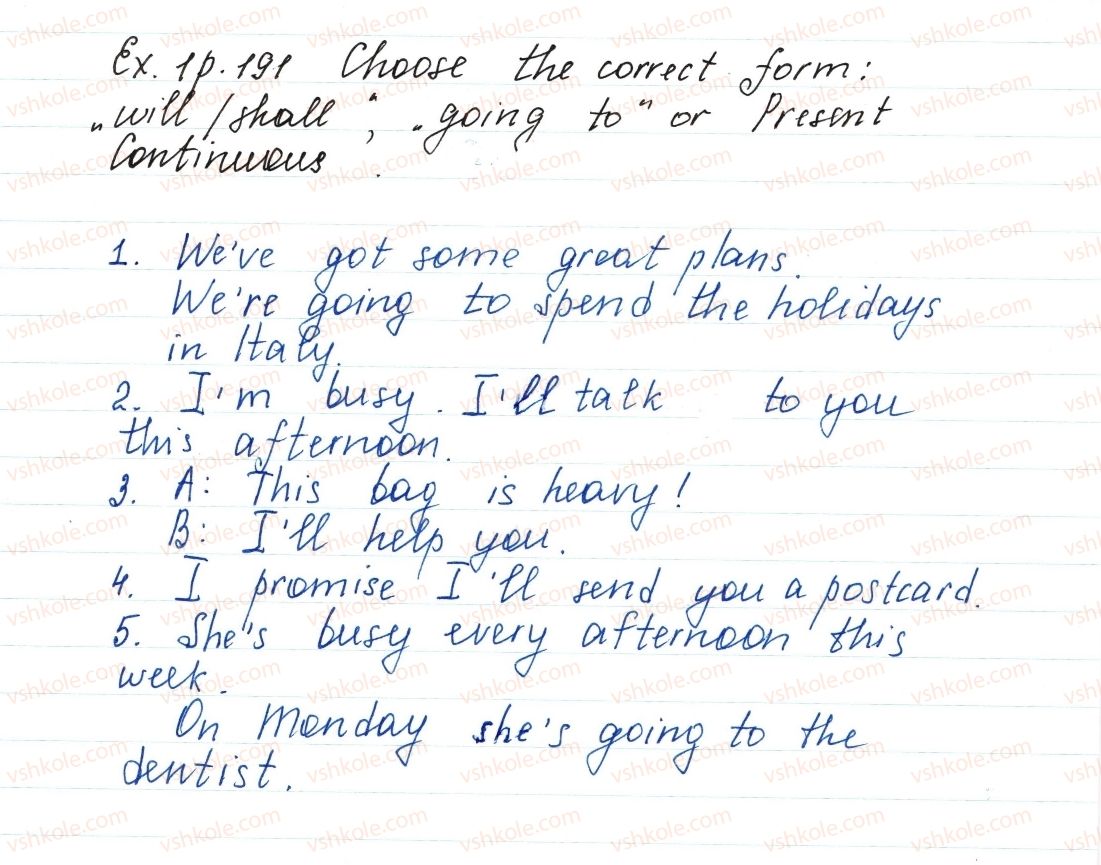 Ex. 1 p. 191 Choose the correct form:
„will / shall“, „going to“ or Present
Continuous.
1. We've got some great plans.
We're going to spend the holidays
in Italy.
2. I'm busy. I'll talk to you
this afternoon.
3. A: This bag is heavy!
B: I'll help you.
4. I promise I'll send you a postcard.
5. She's busy every afternoon this
week.
On Monday she's going to the
dentist.